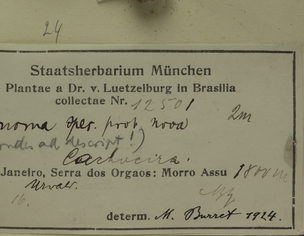 24
Staatsherbarium München
Plantae a Dr. v. Luetzelburg in Brasilia
collectae Nr. 12501
noma spec. prob. nova 2m
ad descript!)
Cachoeira.
Janeiro, Serra dos Orgaos: Morro Assu 1800m
Urwald.
16.
determ. M. Burret 1924.